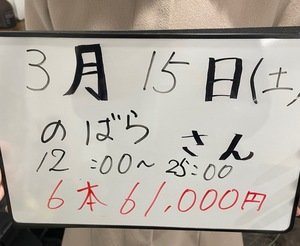 3月 15日(土)
のばら さん
12:00～25:00
6本 61,000円